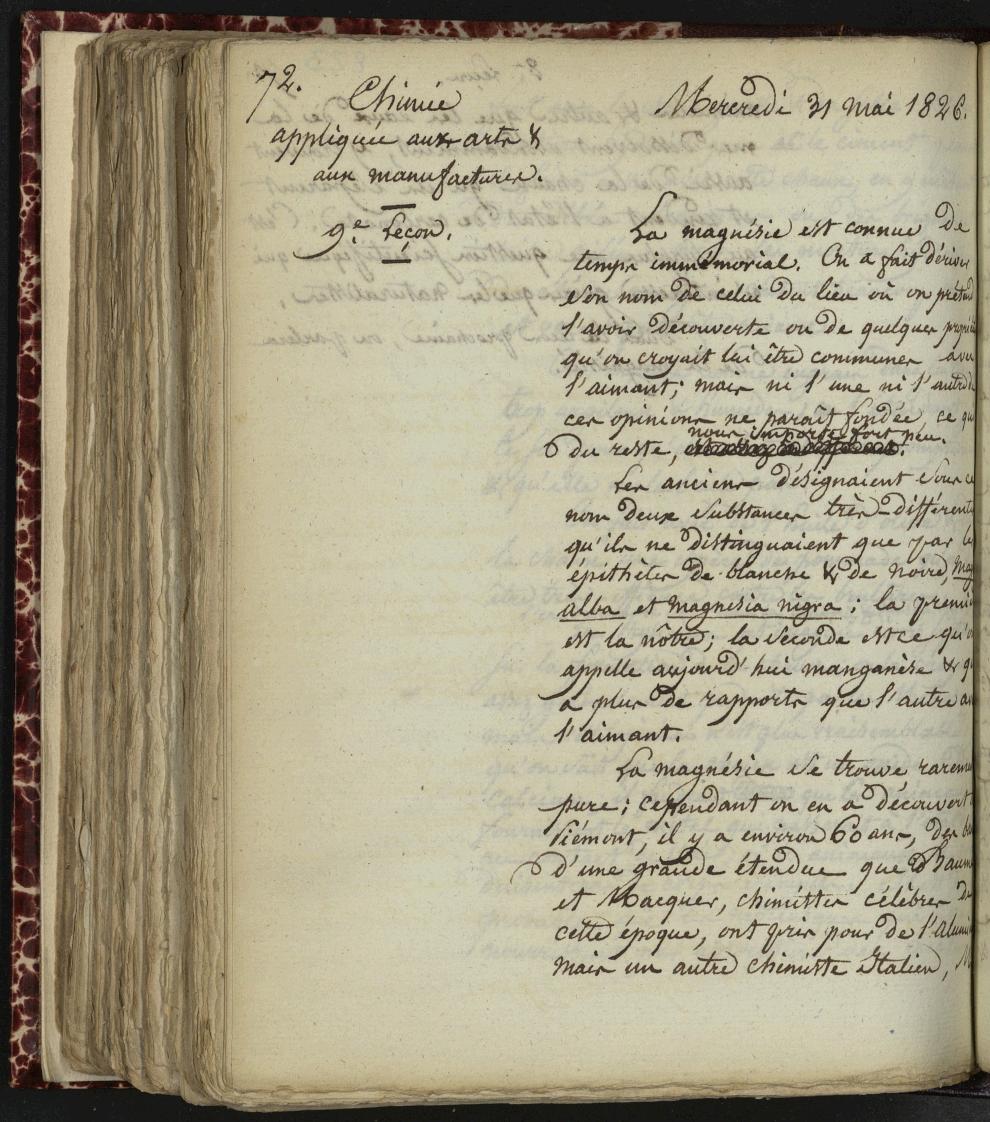 72.
Chimie
appliquée aux arts &
aux manufactures.
9.e Leçon.
Mercredi 31 mai 1826.
La magnésie est connue de
temps immémorial. On a fait dériver
son nom de celui du lieu où on prétend
l'avoir découverte ou de quelques
qu'on croyait lui être communes avec
l'aimant; mais ni l'une ni l'autre de
ces opinions ne paraît fondée, ce qui
du reste, nous importe fort peu.
Les anciens désignaient sous ce
nom deux substances très-différentes
qu'ils ne distinguaient que par les
épithètes de blanche & de noire,
alba et magnesia nigra; la premiè
est la nôtre; la seconde est ce qu'o
appelle aujourd'hui manganèse & qu
a plus de rapports que l'autre av
l'aimant.
La magnésie se trouve rarem
pure; cependant on en a découvert
Piémont, il y a environ 60 ans, des
d'une grande étendue que Baum
et Macquer, chimistes célèbres de
cette époque, ont pris pour de l'alumi
mais un autre chimiste Italien,